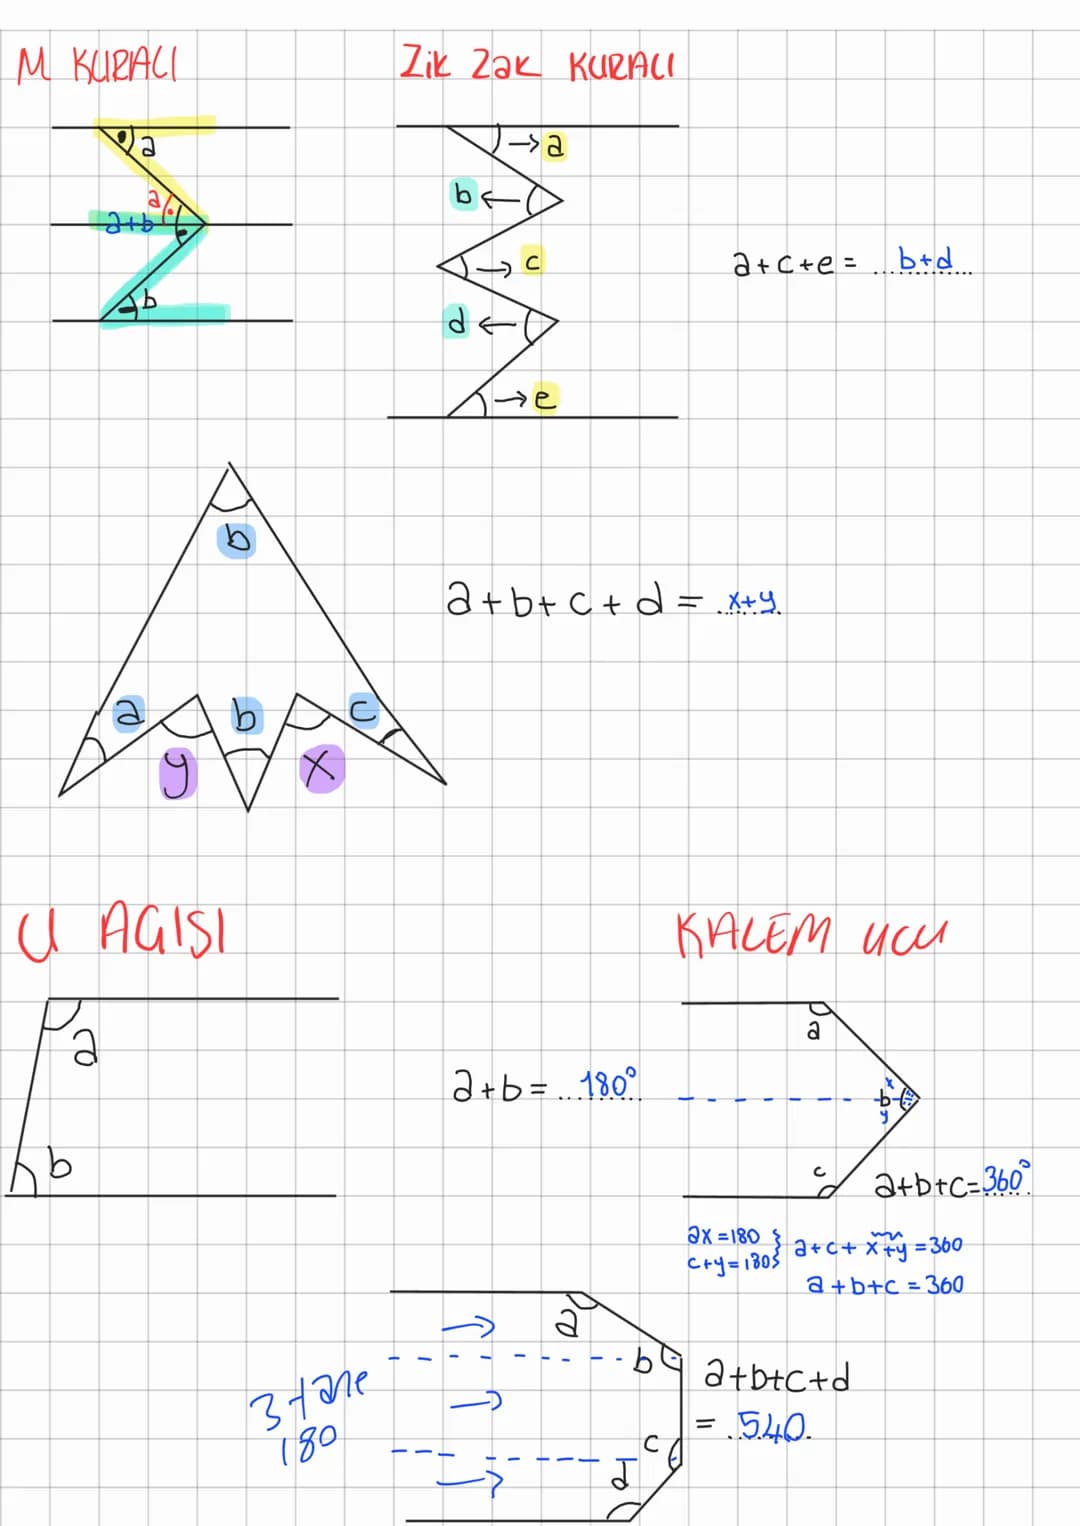 M KURALI
a
a
a+b
b
Zik Zak KURALI
→ a
b ←
→ c
d ←
→ e
a+c+e = ...b+d...
b
a
b
c
y
x
a+b+c+d = .x+y.
U AÇISI
a
b
a+b = ..180°..
KALEM UCU
a
x
b
y
c
a+b+c=360°
ax=180
c+y=180
} a+c+x+y=360
a+b+c=360
a
b
c
d
3 tane
180
a+b+c+d
= .540.